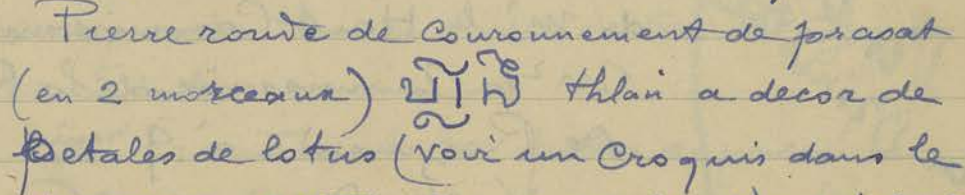 Pierre ronde de couronnement de prasat
(en 2 morceaux) thlai a decor de
petales de lotus (voir un croquis dans le